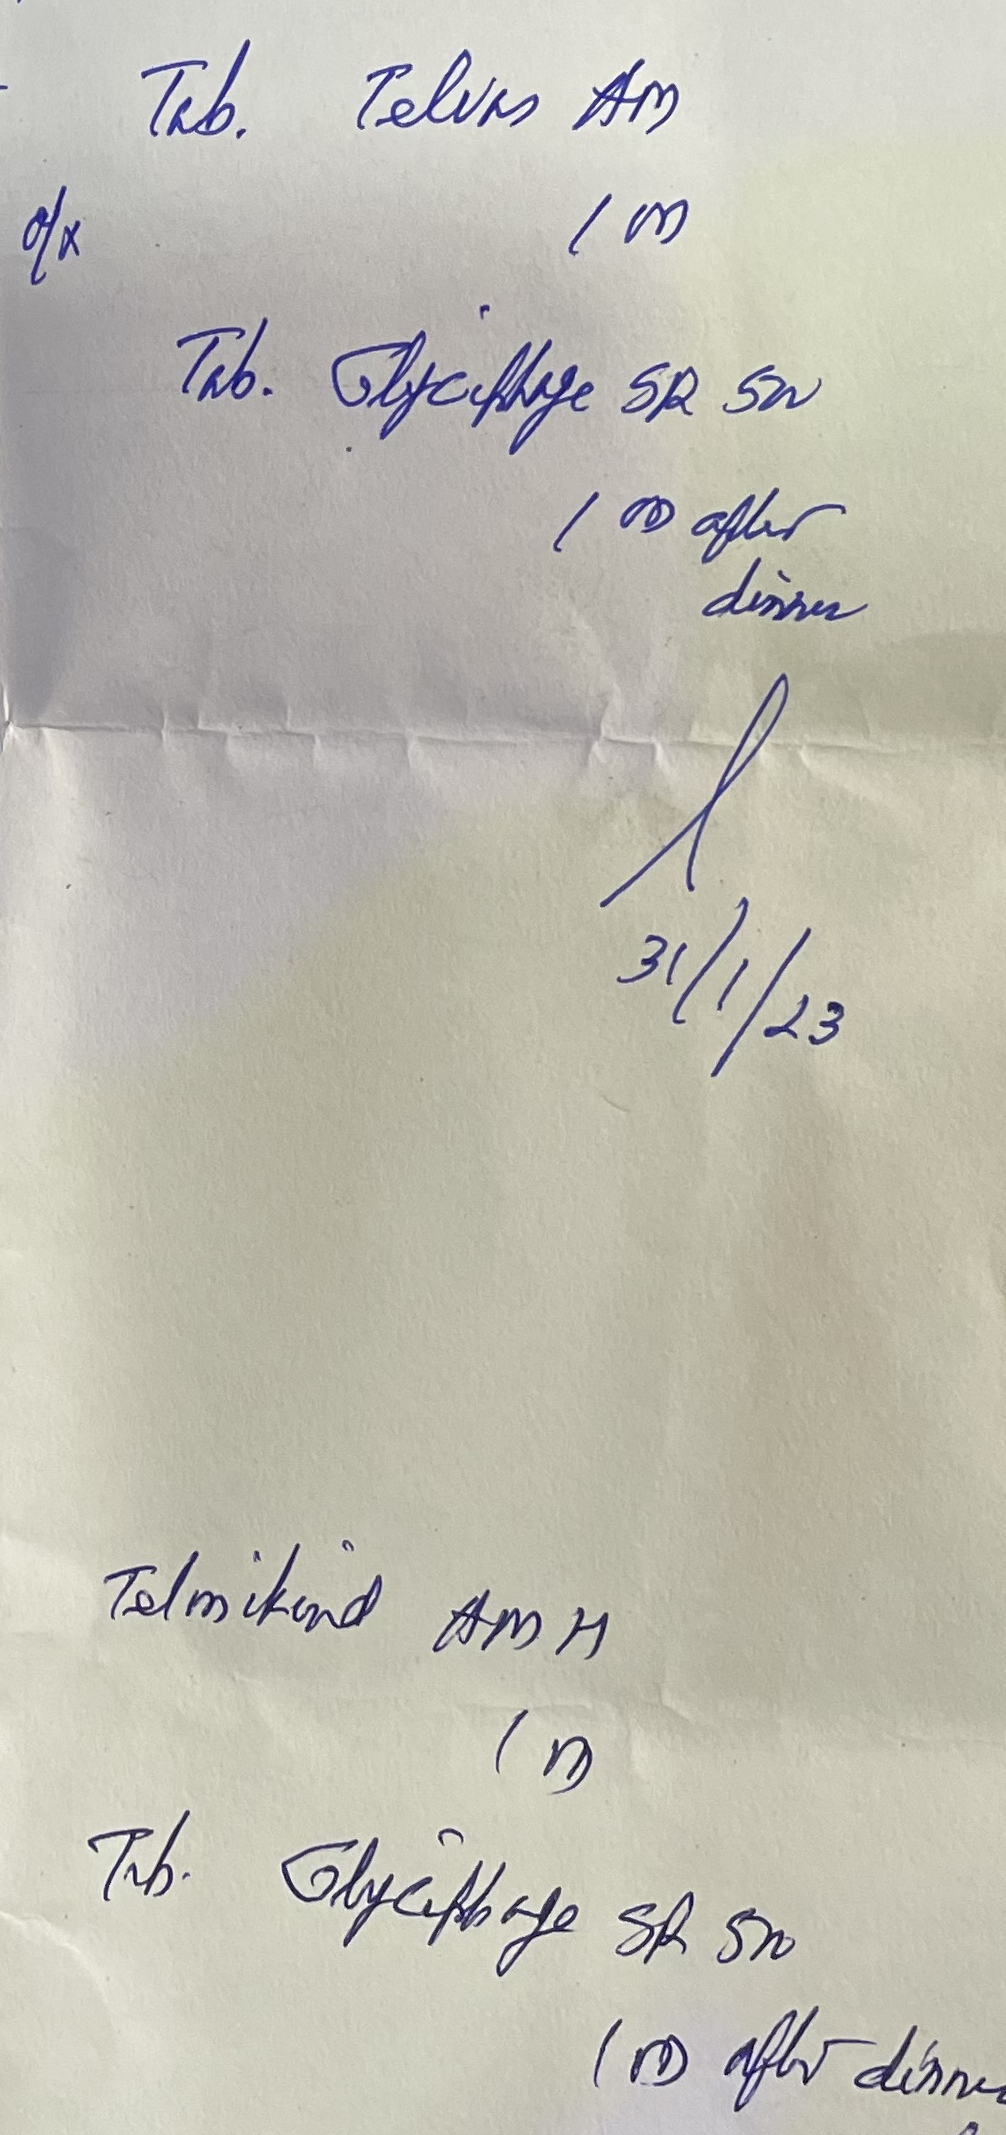 Tab. Telvas AM
a/x
1 OD
Tab. Glyciphage SR 500
1 OD after
dinner
31/1/23
Telmikind AM H
1 OD
Tab. Glyciphage SR 500
1 OD after dinner